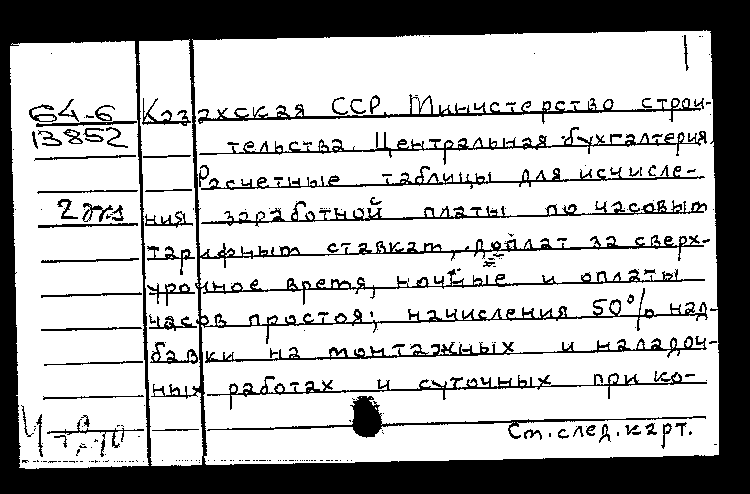 64-6 Казахская ССР. Министерство строи-
13852 тельства. Центральная бухгалтерия.
Расчетные таблицы для исчисле-
2 экз ния заработной платы по часовым
тарифным ставкам, доплат за сверх-
урочное время, ночные и оплаты
часов простоя; начисления 50% над-
бавки на монтажных и наладоч-
ных работах и суточных при ко-
См. след. карт.